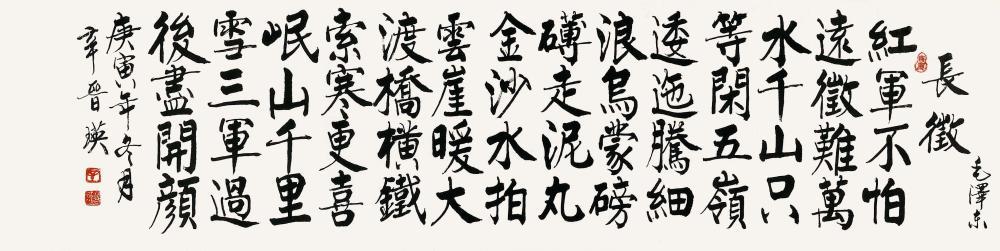 長徵
毛澤东
紅軍不怕
遠徵難萬
水千山只
等閑五嶺
逶迤騰細
浪烏蒙磅
礴走泥丸
金沙水拍
雲崖暖大
渡橋橫鐵
索寒更喜
岷山千里
雪三軍過
後盡開顏
庚寅年冬月
辛晉瑛